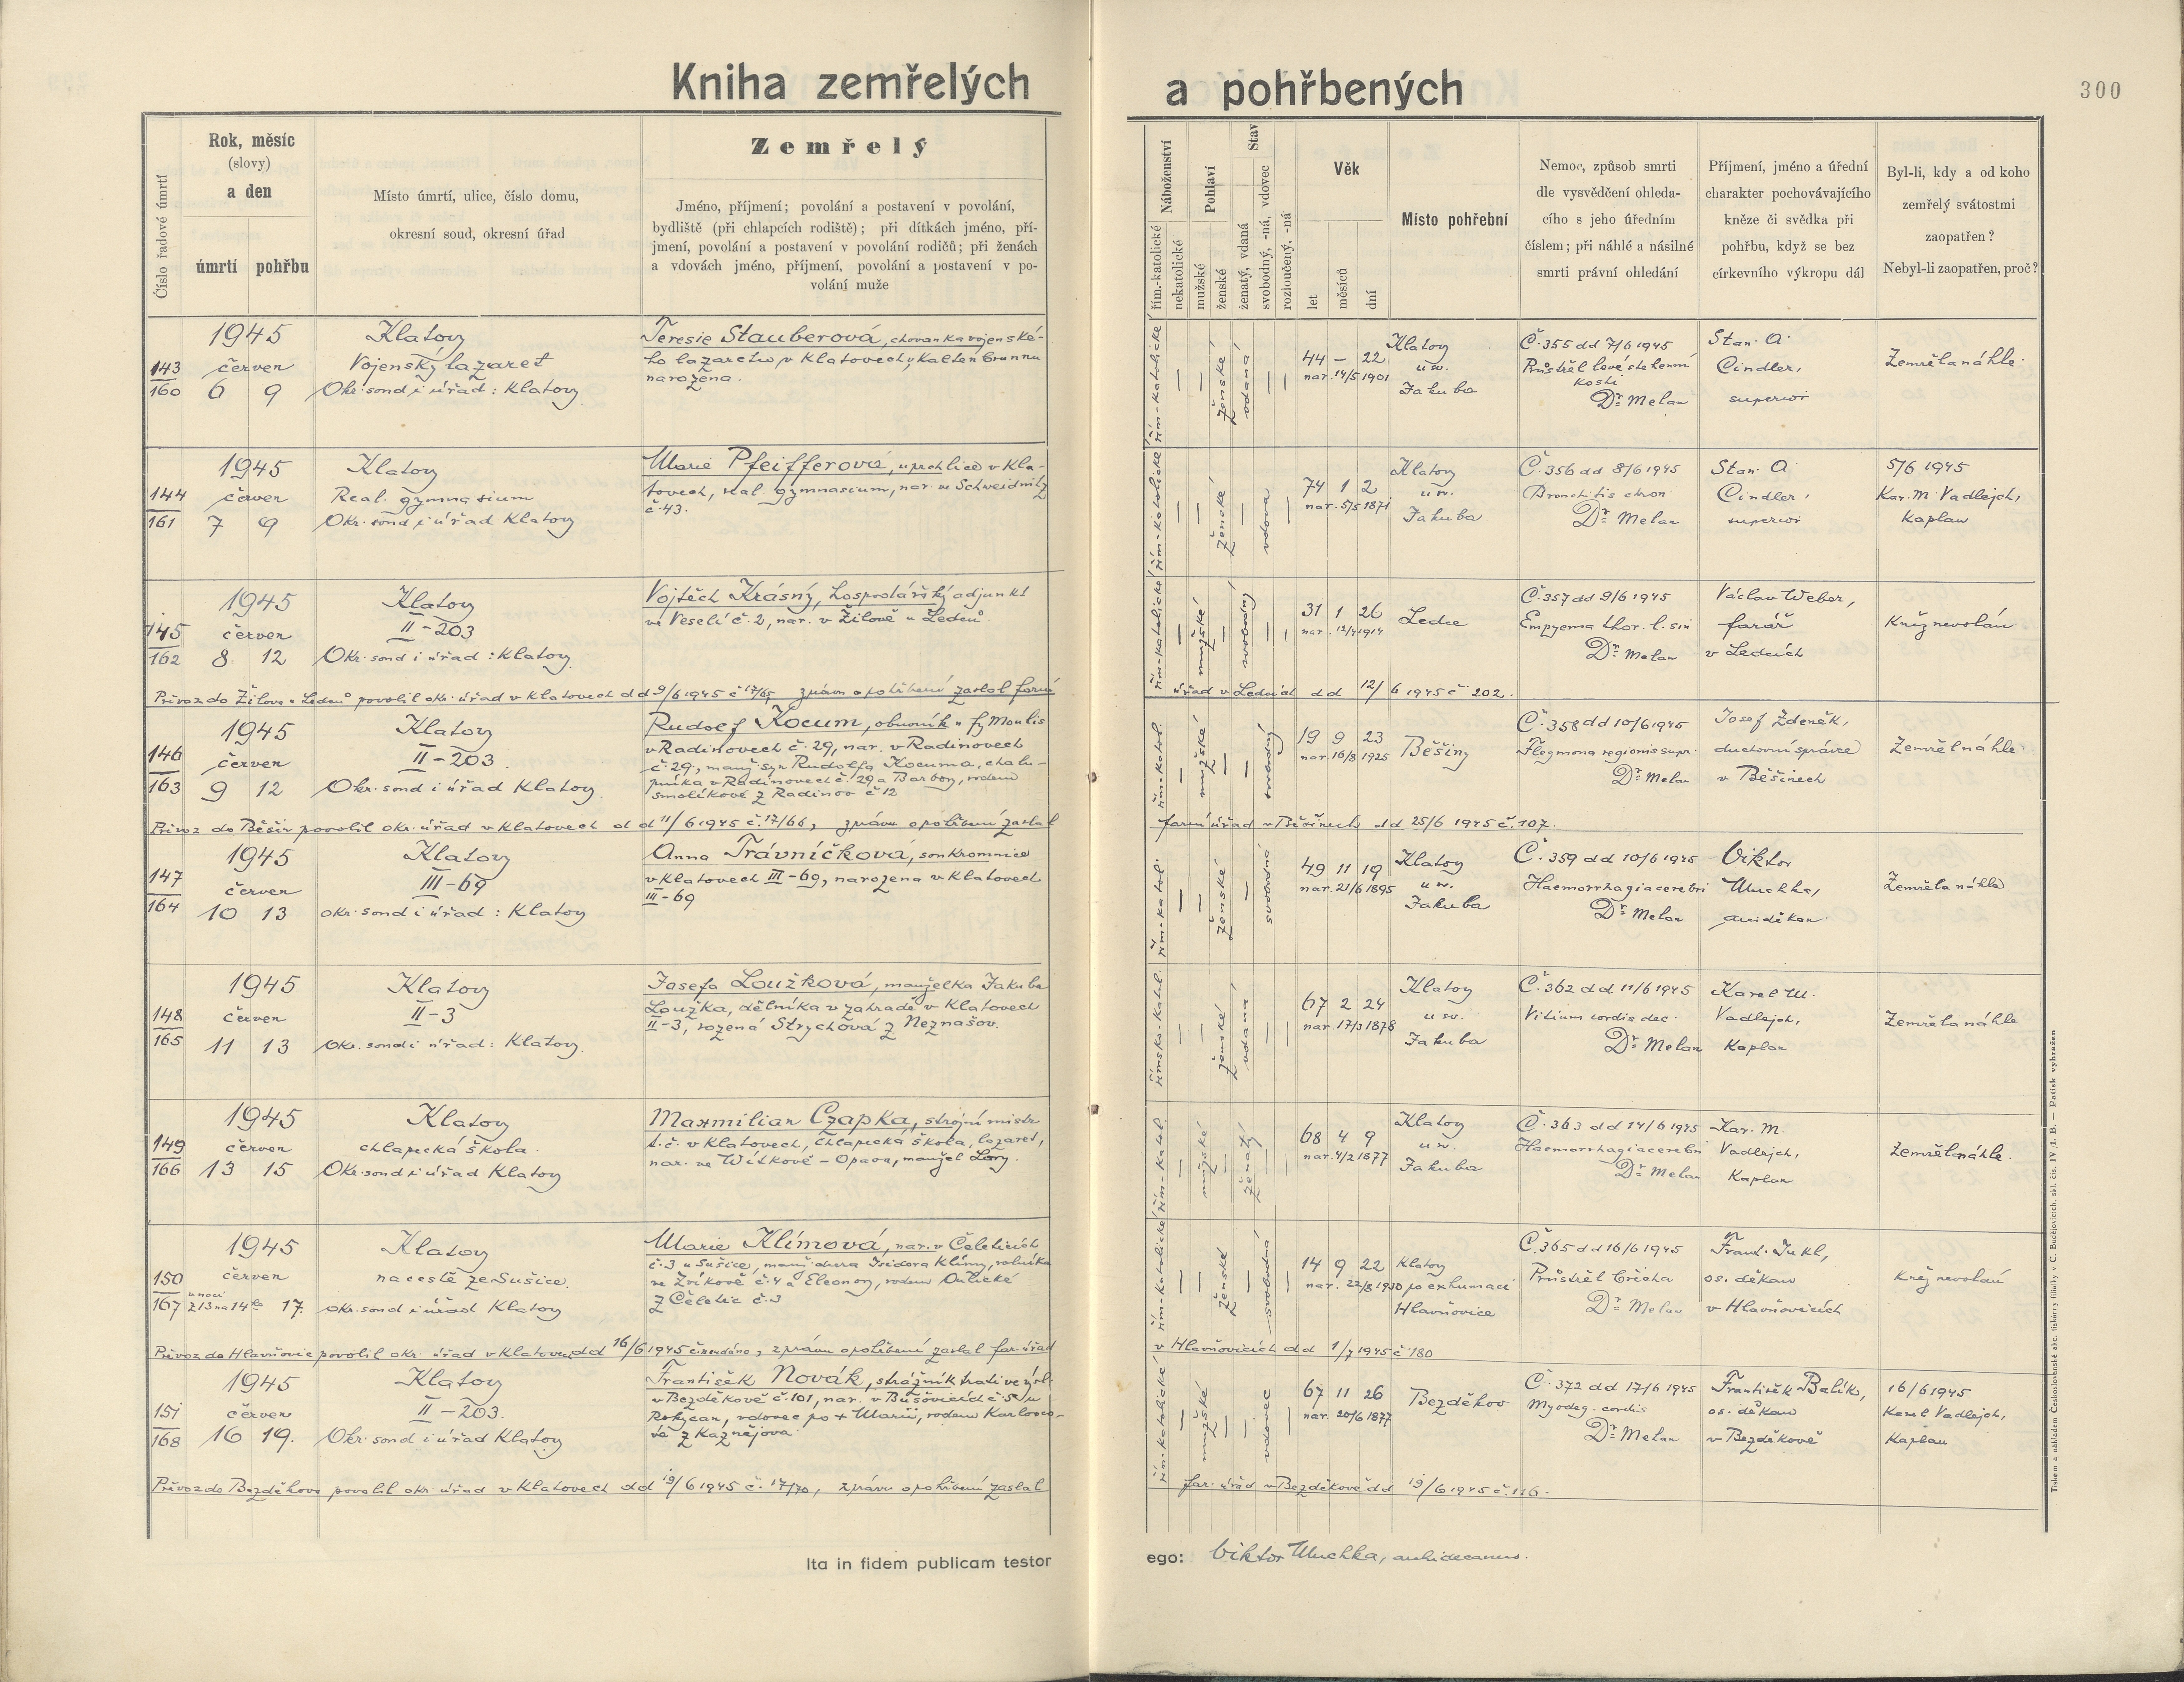 Kniha zemřelých a pohřbených
300
Číslo řadové úmrtí
Rok, měsíc
(slovy)
a den
úmrtí pohřbu
Místo úmrtí, ulice, číslo domu,
okresní soud, okresní úřad
Zemřelý
Jméno, příjmení; povolání a postavení v povolání,
bydliště (při chlapcích rodiště); při dítkách jméno, pří-
jmení, povolání a postavení v povolání rodičů; při ženách
a vdovách jméno, příjmení, povolání a postavení v po-
volání muže
Náboženství
řím.-katolické
nekatolické
Pohlaví
mužské
ženské
Stav
ženatý, vdaná
svobodný, -ná, vdovec
rozloučený, -ná
Věk
let
měsíců
dní
Místo pohřební
Nemoc, způsob smrti
dle vysvědčení ohleda-
cího s jeho úředním
číslem; při náhlé a násilné
smrti právní ohledání
Příjmení, jméno a úřední
charakter pochovávajícího
kněze či svědka při
pohřbu, když se bez
církevního výkropu dál
Byl-li, kdy a od koho
zemřelý svátostmi
zaopatřen?
Nebyl-li zaopatřen, proč?
143
160
1945
červen
6 9
Klatovy
Vojenský lazaret
Okr. soud i úřad: Klatovy
Teresie Stauberová, chovanka vojenské-
ho lazaretu v Klatovech, v Kaltenbrunnu
narozena.
řím.-katolické
ženské
vdaná
44 – 22
nar. 14/5 1901
Klatovy
u sv.
Jakuba
Č. 355 dd 7/6 1945
Průstřel levé stehenní
kosti
Dr. Melan
Stan. O.
Cindler,
superior
Zemřela náhle.
144
161
1945
červen
7 9
Klatovy
Real. gymnasium
Okr. soud i úřad Klatovy
Marie Pfeifferová, uprchlice v Kla-
tovech, real. gymnasium, nar. ve Schweidnitz
č. 43.
řím.-katolické
ženské
vdova
74 1 2
nar. 5/5 1871
Klatovy
u sv.
Jakuba
Č. 356 dd 8/6 1945
Bronchitis chron.
Dr. Melan
Stan. O.
Cindler,
superior
5/6 1945
Kar. M. Vadlejch,
Kaplan
145
162
1945
červen
8 12
Klatovy
II – 203
Okr. soud i úřad: Klatovy.
Vojtěch Krásný, hospodářský adjunkt
ve Veselí č. 2, nar. v Žilově u Ledců.
řím.-katolické
mužské
svobodný
31 1 26
nar. 12/4 1914
Ledce
Č. 357 dd 9/6 1945
Empyema thor. l. sin
Dr. Melan
Václav Weber,
farář
v Ledcích
Kněz nevolán
Převoz do Žilova u Ledců povolil okr. úřad v Klatovech dd 9/6 1945 č. 17/65, zprávu o pohřbení zaslal farní
úřad v Ledcích dd 12/6 1945 č. 202.
146
163
1945
červen
9 12
Klatovy
II – 203.
Okr. soud i úřad Klatovy.
Rudolf Kocum, obuvník u fy Moulis
v Radinovech č. 29, nar. v Radinovech
č. 29, manž. syn Rudolfa Kocuma, chalu-
pníka v Radinovech č. 29 a Barbory, rodem
Smolíkové z Radinov č 12
řím.-katol.
mužské
svobodný
19 9 23
nar. 16/8 1925
Běšiny
Č. 358 dd 10/6 1945
Flegmona regionis supr.
Dr. Melan
Josef Zdeněk,
duchovní správce
v Běšinech
Zemřel náhle.
Převoz do Běšin povolil okr. úřad v Klatovech dd 11/6 1945 č. 17/66, zprávu o pohřbení zaslal
farní úřad v Běšinech dd 25/6 1945 č. 107.
147
164
1945
červen
10 13
Klatovy
III – 69
okr. soud i úřad: Klatovy
Anna Trávníčková, soukromnice
v Klatovech III – 69, narozena v Klatovech
III – 69
řím.-katol.
ženské
svobodná
49 11 19
nar. 21/6 1895
Klatovy
u sv.
Jakuba
Č. 359 dd 10/6 1945
Haemorrhagia cerebri
Dr. Melan
Viktor
Muchka,
arciděkan
Zemřela náhle.
148
165
1945
červen
11 13
Klatovy
II – 3
Okr. soud i úřad: Klatovy.
Josefa Loužková, manželka Jakuba
Loužka, dělníka v zahradě v Klatovech
II – 3, rozená Strychová z Neznašov.
římsko-katol.
ženské
vdaná
67 2 24
nar. 17/3 1878
Klatovy
u sv.
Jakuba
Č. 362 dd 11/6 1945
Vitium cordis dec.
Dr. Melan
Karel M.
Vadlejch,
Kaplan
Zemřela náhle
149
166
1945
červen
13 15
Klatovy
chlapecká škola.
Okr. soud i úřad Klatovy
Maxmilian Czapka, strojní mistr
t. č. v Klatovech, chlapecká škola, lazaret,
nar. ve Wítkově – Opava, manžel Lory.
řím.-katol.
mužské
ženatý
68 4 9
nar. 4/2 1877
Klatovy
u sv.
Jakuba
Č. 363 dd 14/6 1945
Haemorrhagia cerebri
Dr. Melan
Kar. M.
Vadlejch,
Kaplan
Zemřel náhle.
150
167
1945
červen
v noci
z 13 na 14ho 17.
Klatovy
na cestě ze Sušice.
okr. soud i úřad Klatovy
Marie Klímová, nar. v Čeleticích
č. 3 u Sušice, manž. dcera Isidora Klímy, rolníka
ve Zvíkově č. 4 a Eleonory, rodem
z Čeletic č. 3
řím.-katolické
ženské
svobodná
14 9 22
nar. 22/8 1930
Klatovy
po exhumaci
Hlavňovice
Č. 365 dd 16/6 1945
Průstřel břicha
Dr. Melan
Frant. Jukl,
os. děkan
v Hlavňovicích
Kněz nevolán
Převoz do Hlavňovic povolil okr. úřad v Klatovech dd 16/6 1945 č. neudáno, zprávu o pohřbení zaslal far. úřad
v Hlavňovicích dd 1/7 1945 č. 180
151
168
1945
červen
16 19.
Klatovy
II – 203.
Okr. soud i úřad Klatovy
František Novák, strážník trati ve výsl.
v Bezděkově č. 101, nar. v Bušovicích č. 5 u
Rokycan, vdovec po + Marii, rodem Karlovco-
vé z Kaznějova
řím.-katolické
mužské
vdovec
67 11 26
nar. 20/6 1877
Bezděkov
Č. 372 dd 17/6 1945
Myodeg. cordis
Dr. Melan
František Balík,
os. děkan
v Bezděkově
16/6 1945
Karel Vadlejch,
Kaplan
Převoz do Bezděkova povolil okr. úřad v Klatovech dd 19/6 1945 č. 17/70, zprávu o pohřbení zaslal
far. úřad v Bezděkově dd 19/6 1945 č. 116.
Ita in fidem publicam testor ego: Viktor Muchka, archidecanus.
Tiskem a nákladem Československé akc. tiskárny filiálky v Č. Budějovicích, skl. čís. IV/1. B. — Patisk vyhražen